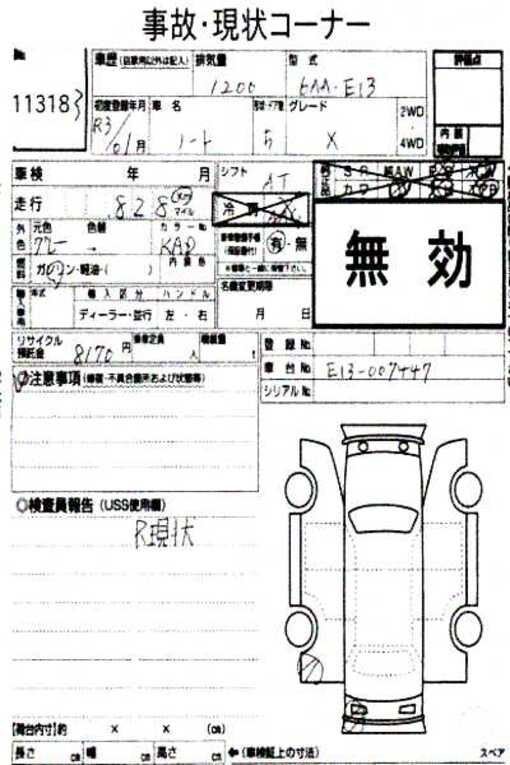 事故・現状コーナー
No.
11318
車歴 (自家用以外は記入) 排気量 型式 評価点
1200 6AA-E13
初度登録年月 車名 グレード 2WD
R3/01月 ノート 5 X 4WD
内装
車検 年 月 シフト AT
走行 828 マイル
外色 元色 色替 カラーNo.
グレー → KAD
有・無
無効
燃料 ガソリン・軽油・( ) 内装色
名義変更期限
輸入区分 ハンドル
ディーラー・並行 左・右 月 日
リサイクル預託金 8170円 乗車定員 人 積載量 t
登録No.
車台No. E13-007447
シリアルNo.
注意事項 (修復・不具合箇所および状態等)
◎検査員報告 (USS使用欄)
R現状
【荷台内寸】約 × × (cm)
長さ cm 幅 cm 高さ cm ←(車検証上の寸法) スペア